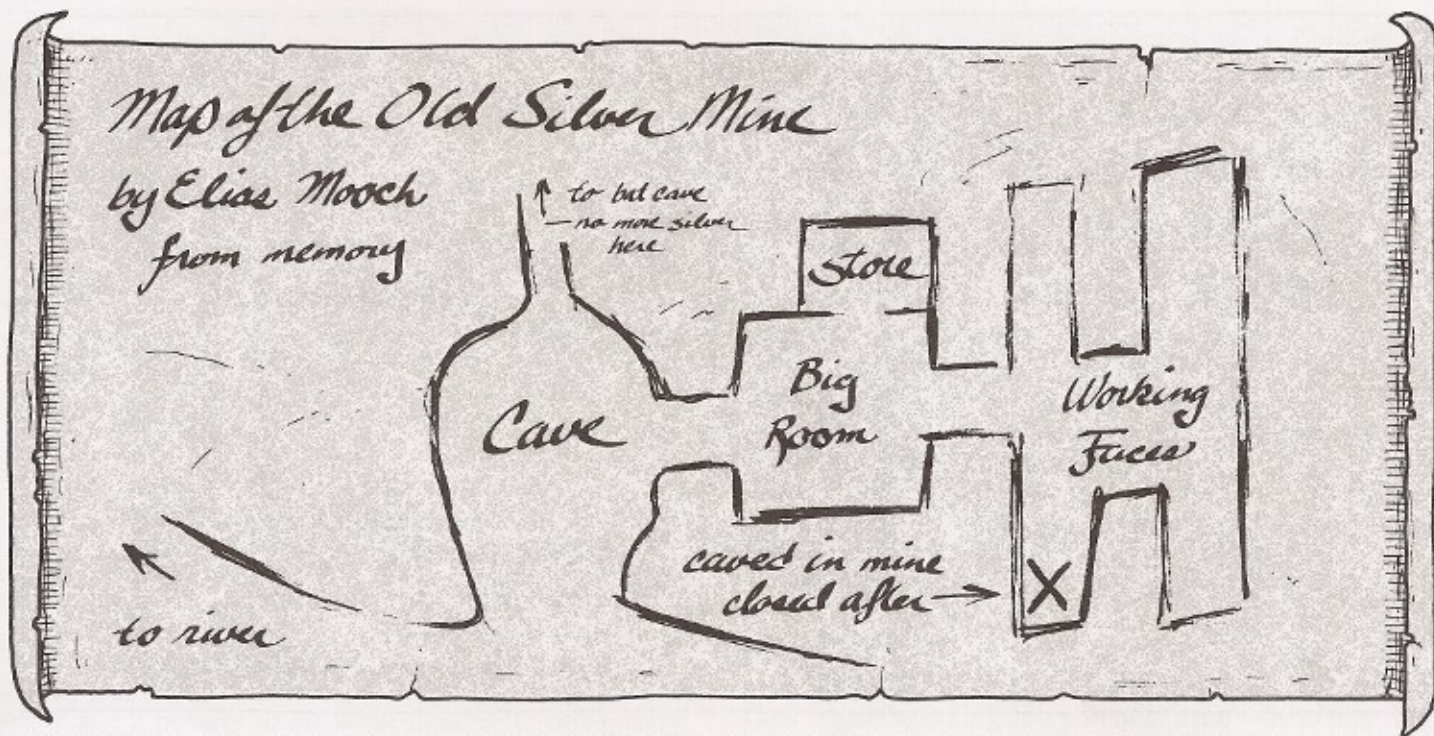 Map of the Old Silver Mine
by Elias Mooch
from memory
to bat cave
no more silver
here
Store
Big
Room
Cave
Working
Faces
caved in mine
closed after
X
to river